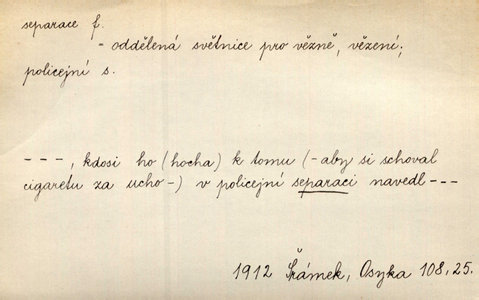 separace f.
- oddělená světnice pro vězně, vězení;
policejní s.
---, kdosi ho (hocha) k tomu (-aby si schoval
cigaretu za ucho-) v policejní separaci navedl ---
1912 Šrámek, Osyka 108,25.